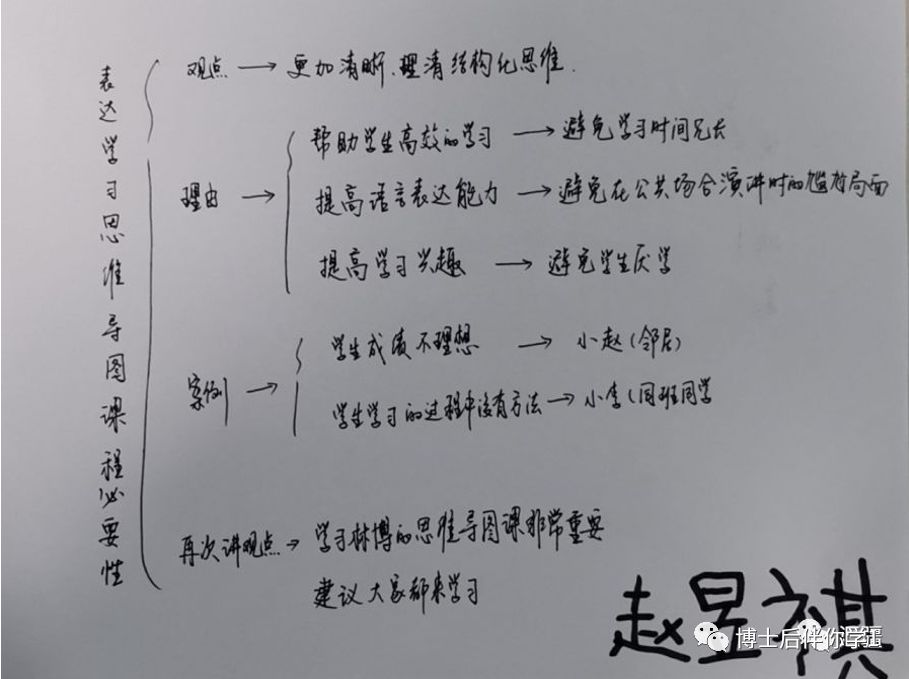 表达学习思维导图课程必要性
观点 → 更加清晰、理清结构化思维.
理由 →
帮助学生高效的学习 → 避免学习时间冗长
提高语言表达能力 → 避免在公共场合演讲时的尴尬局面
提高学习兴趣 → 避免学生厌学
案例 →
学生成绩不理想 → 小赵(邻居)
学生学习的过程中没有方法 → 小李(同班同学
再次讲观点 → 学习林博的思维导图课非常重要
建议大家都来学习
赵昱祺
博士后伴你学